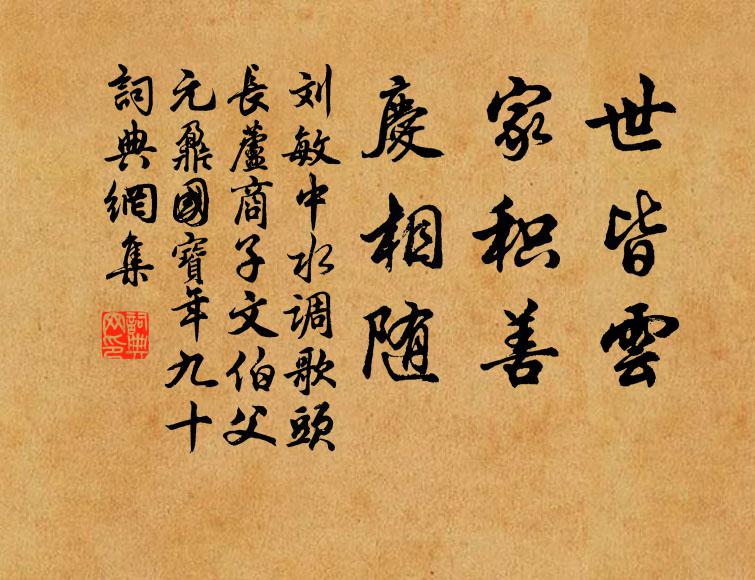 世皆雲
家积善
慶相随
刘敏中水调歌頭
長蘆商子文伯父
元鼐國寶年九十
詞典網集
詞典網印